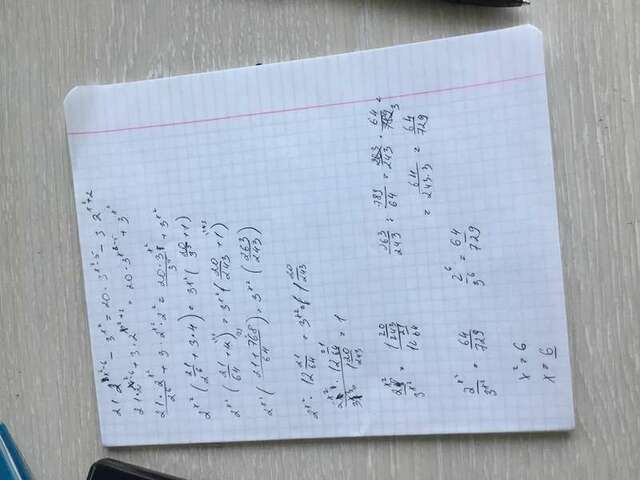 21·2^{x²-6} - 3^{x²} = 20·3^{x²-5} - 3·2^{x²+2}
21·2^{x²-6} + 3·2^{x²+2} = 20·3^{x²-5} + 3^{x²}
21·2^{x²}/2^6 + 3·2^{x²}·2² = 20·3^{x²}/3^5 + 3^{x²}
2^{x²} (21/2^6 + 3·4) = 3^{x²} (20/3^5 + 1)
2^{x²} (21/64 + 12) = 3^{x²} (20/243 + 1)
2^{x²} (21+768/64) = 3^{x²} (263/243)
2^{x²} · 12 21/64 = 3^{x²} · 1 20/243
2^{x²} · 12 21/64 / 3^{x²} · 1 20/243 = 1
2^{x²}/3^{x²} = 1 20/243 / 12 21/64
263/243 : 789/64 = 263/243 · 64/789 3
= 64/243·3 = 64/729
2^{x²}/3^{x²} = 64/729
2^6/3^6 = 64/729
x² = 6
x = 6